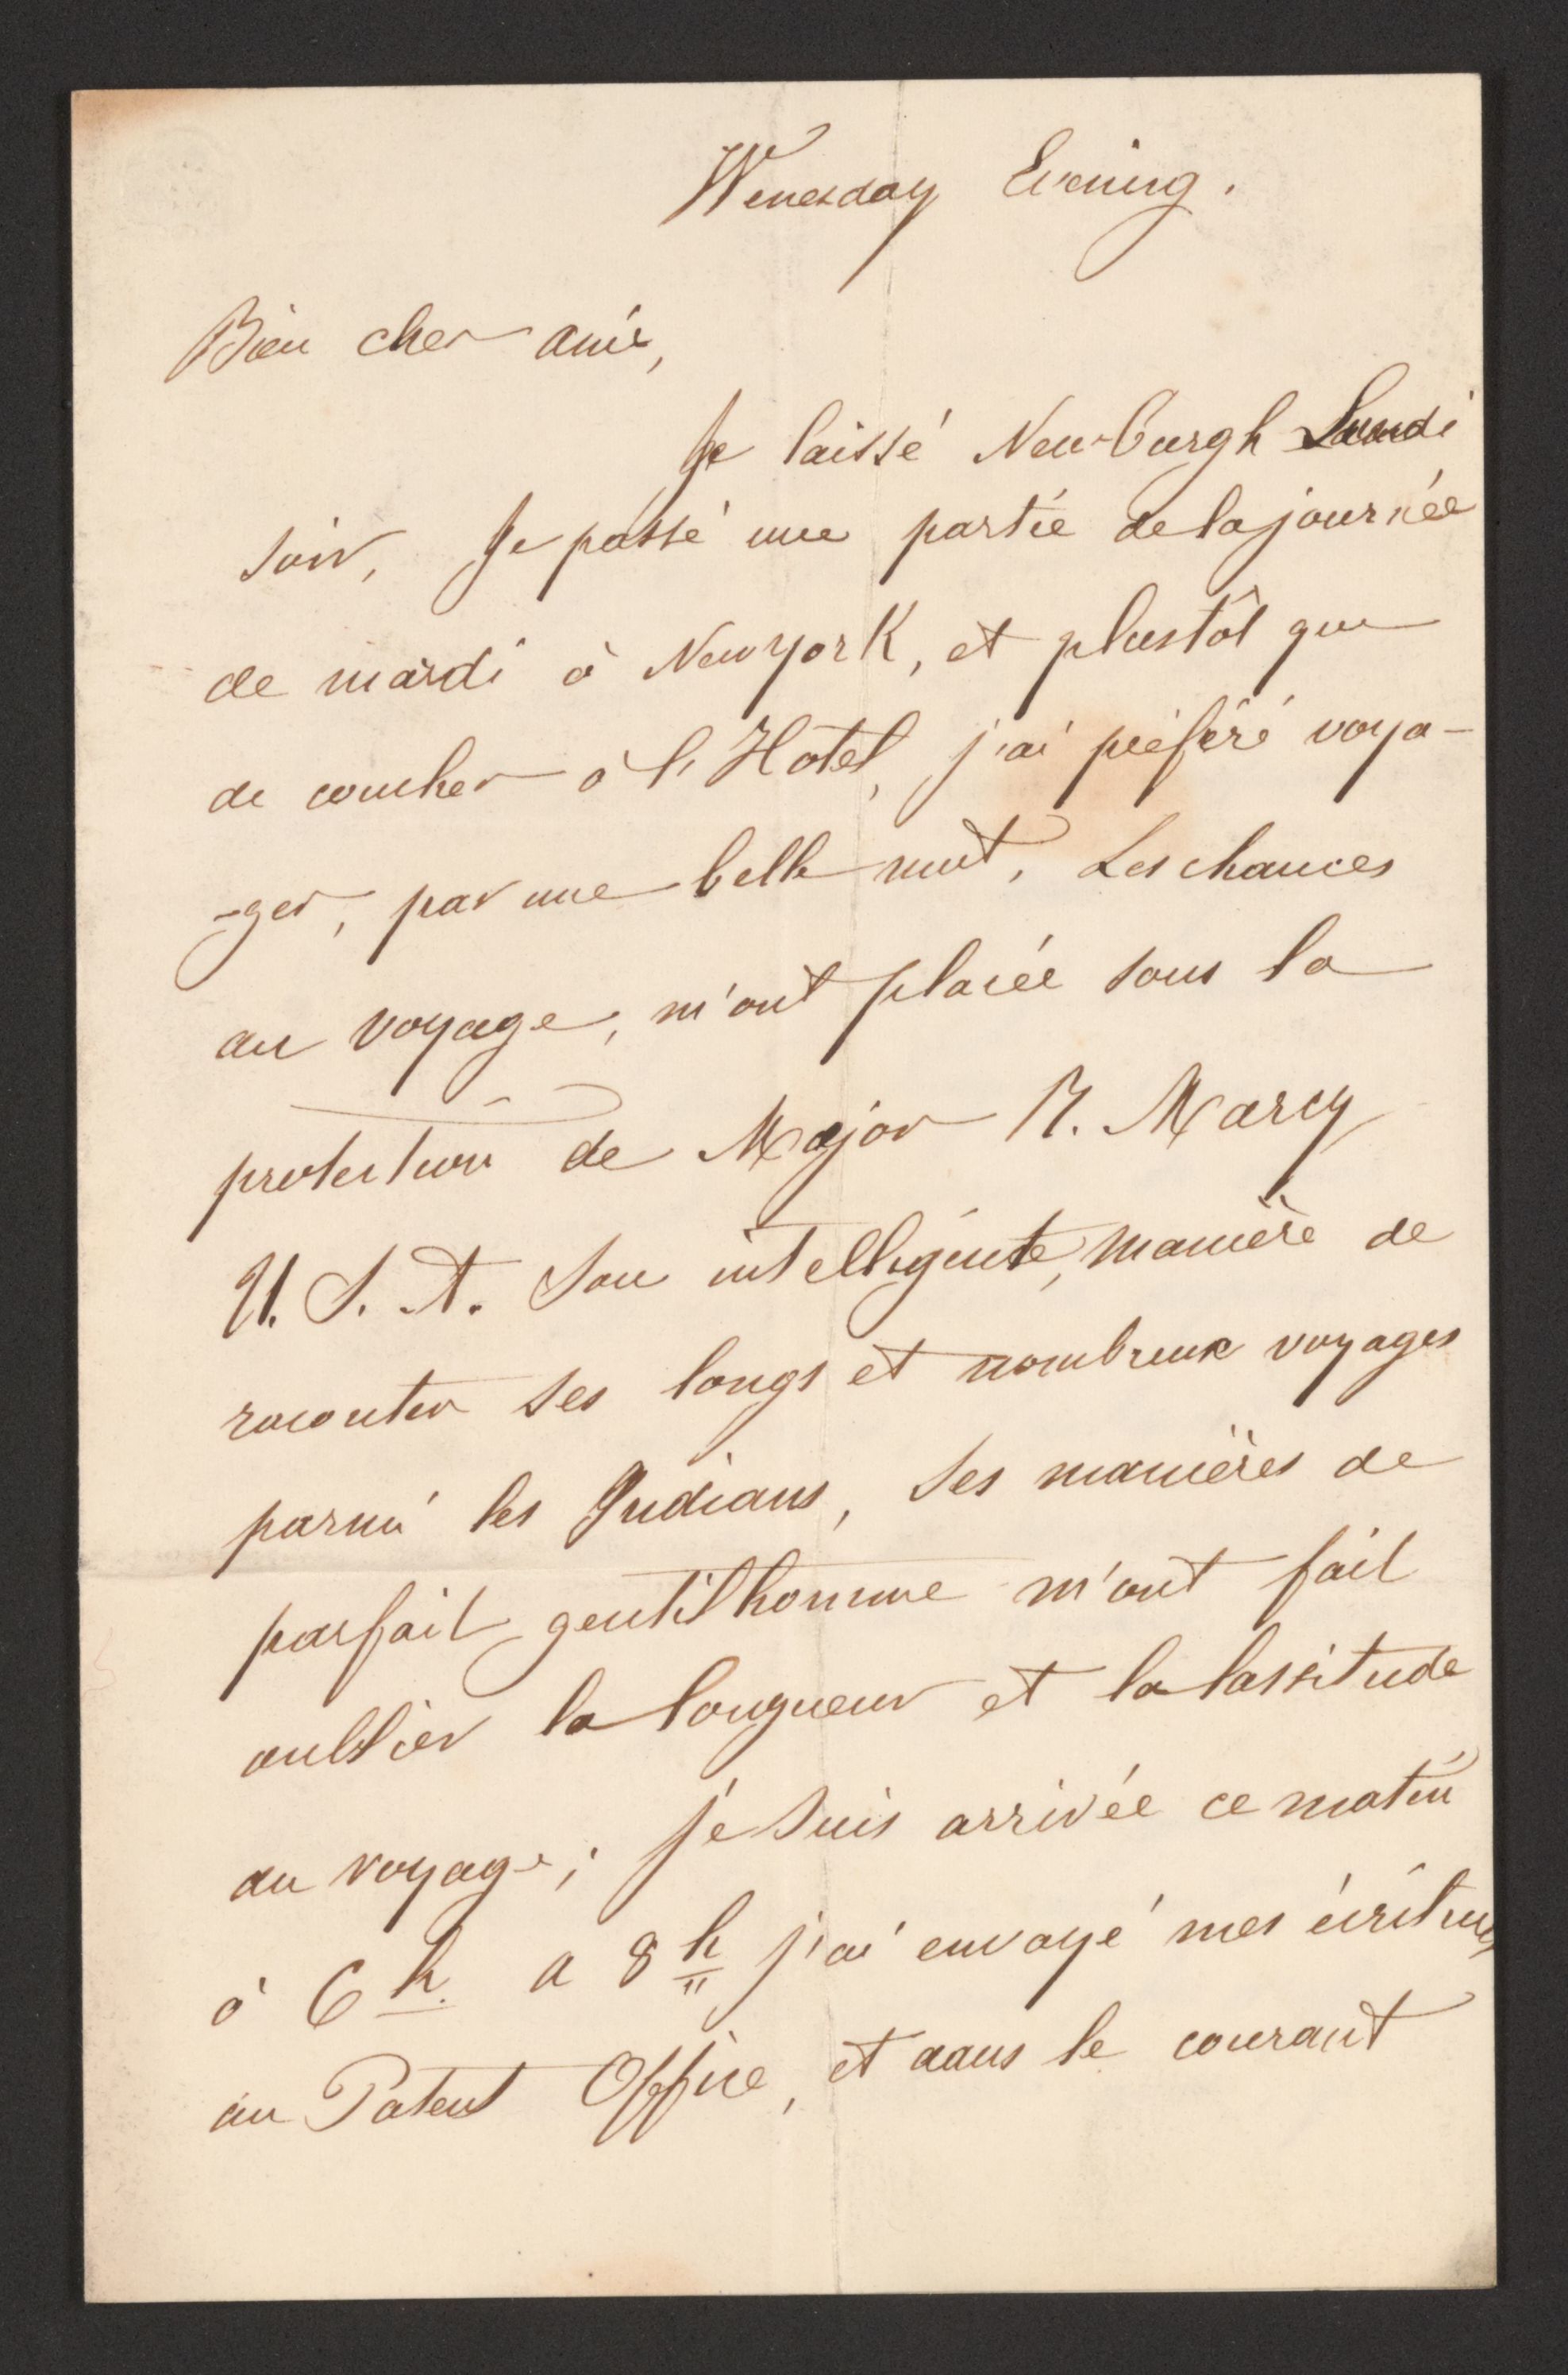 Wenesday Evening.
Bien cher amie,
Je laissé New-burgh Lundi
soir, Je passé une partie de la journée
de mardi à New york, et plustôt que
de coucher à l'Hotel, j'ai préféré voya-
-ger, par une belle nuit. Les chances
du voyage, m'ont placée sous la
protection de Major R. Marcy
U. S. A. Son intelligente, manière de
raconter ses longs et nombreux voyages
parmi les Indians, ses manières de
parfait gentilhomme m'ont fait
oublier la longueur et la lassitude
du voyage; je suis arrivée ce matin
à 6 h. a 8 h j'ai envoyé mes écritures
au Patent Office, et dans le courant